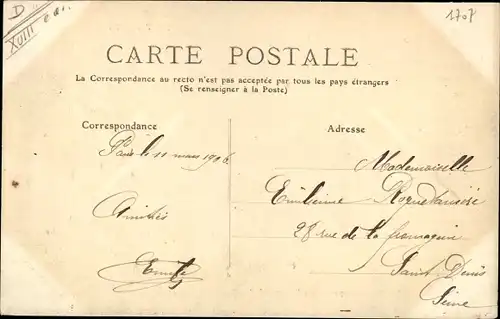 D
XVIII
1707
CARTE POSTALE
La Correspondance au recto n'est pas acceptée par tous les pays étrangers
(Se renseigner à la Poste)
Correspondance
Adresse
Paris le 11 mars 1906
Mademoiselle
Emilienne
Amitiés
28 rue de la
Emile
Saint Denis
Seine